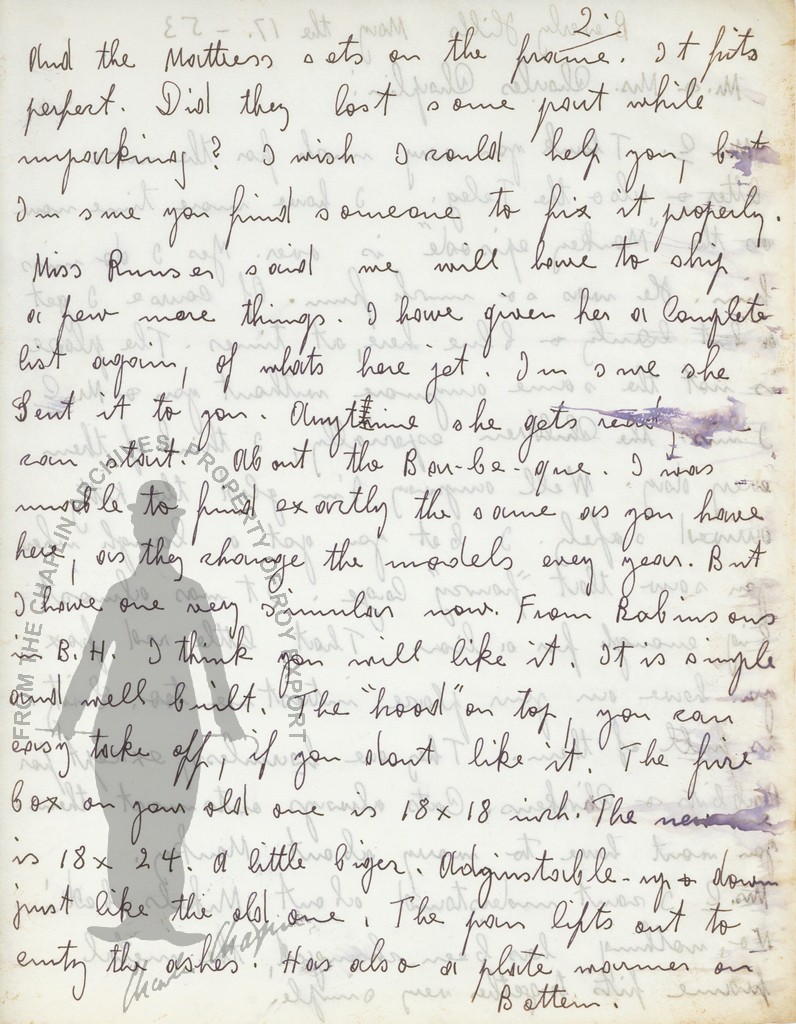 2.
And the Mattress sets on the frame. It fits
perfect. Did they lost some part while
unparking? I wish I could help you, but
I'm sure you find someone to fix it properly.
Miss Runser said we will have to ship
a few more things. I have given her a Complete
list again, of whats here jet. I'm sure she
Sent it to you. Anyttime she gets
can start. About the Bar-be-que. I was
unable to find exactly the same as you have
here, as they change the models every year. But
I have one very simular now. From Robinsons
in B.H. I think you will like it. It is simple
and well built. The "hood" on top, you can
easy take off, if you dont like it. The fire
box on your old one is 18x18 inch. The
is 18x24. A little biger. Adginstable-up + down
just like the old one. The pan lifts out to
emty the ashes. Has also a plate warmer on
Bottem.
FROM THE CHAPLIN ARCHIVES. PROPERTY OF ROY EXPORT
Charles Chaplin